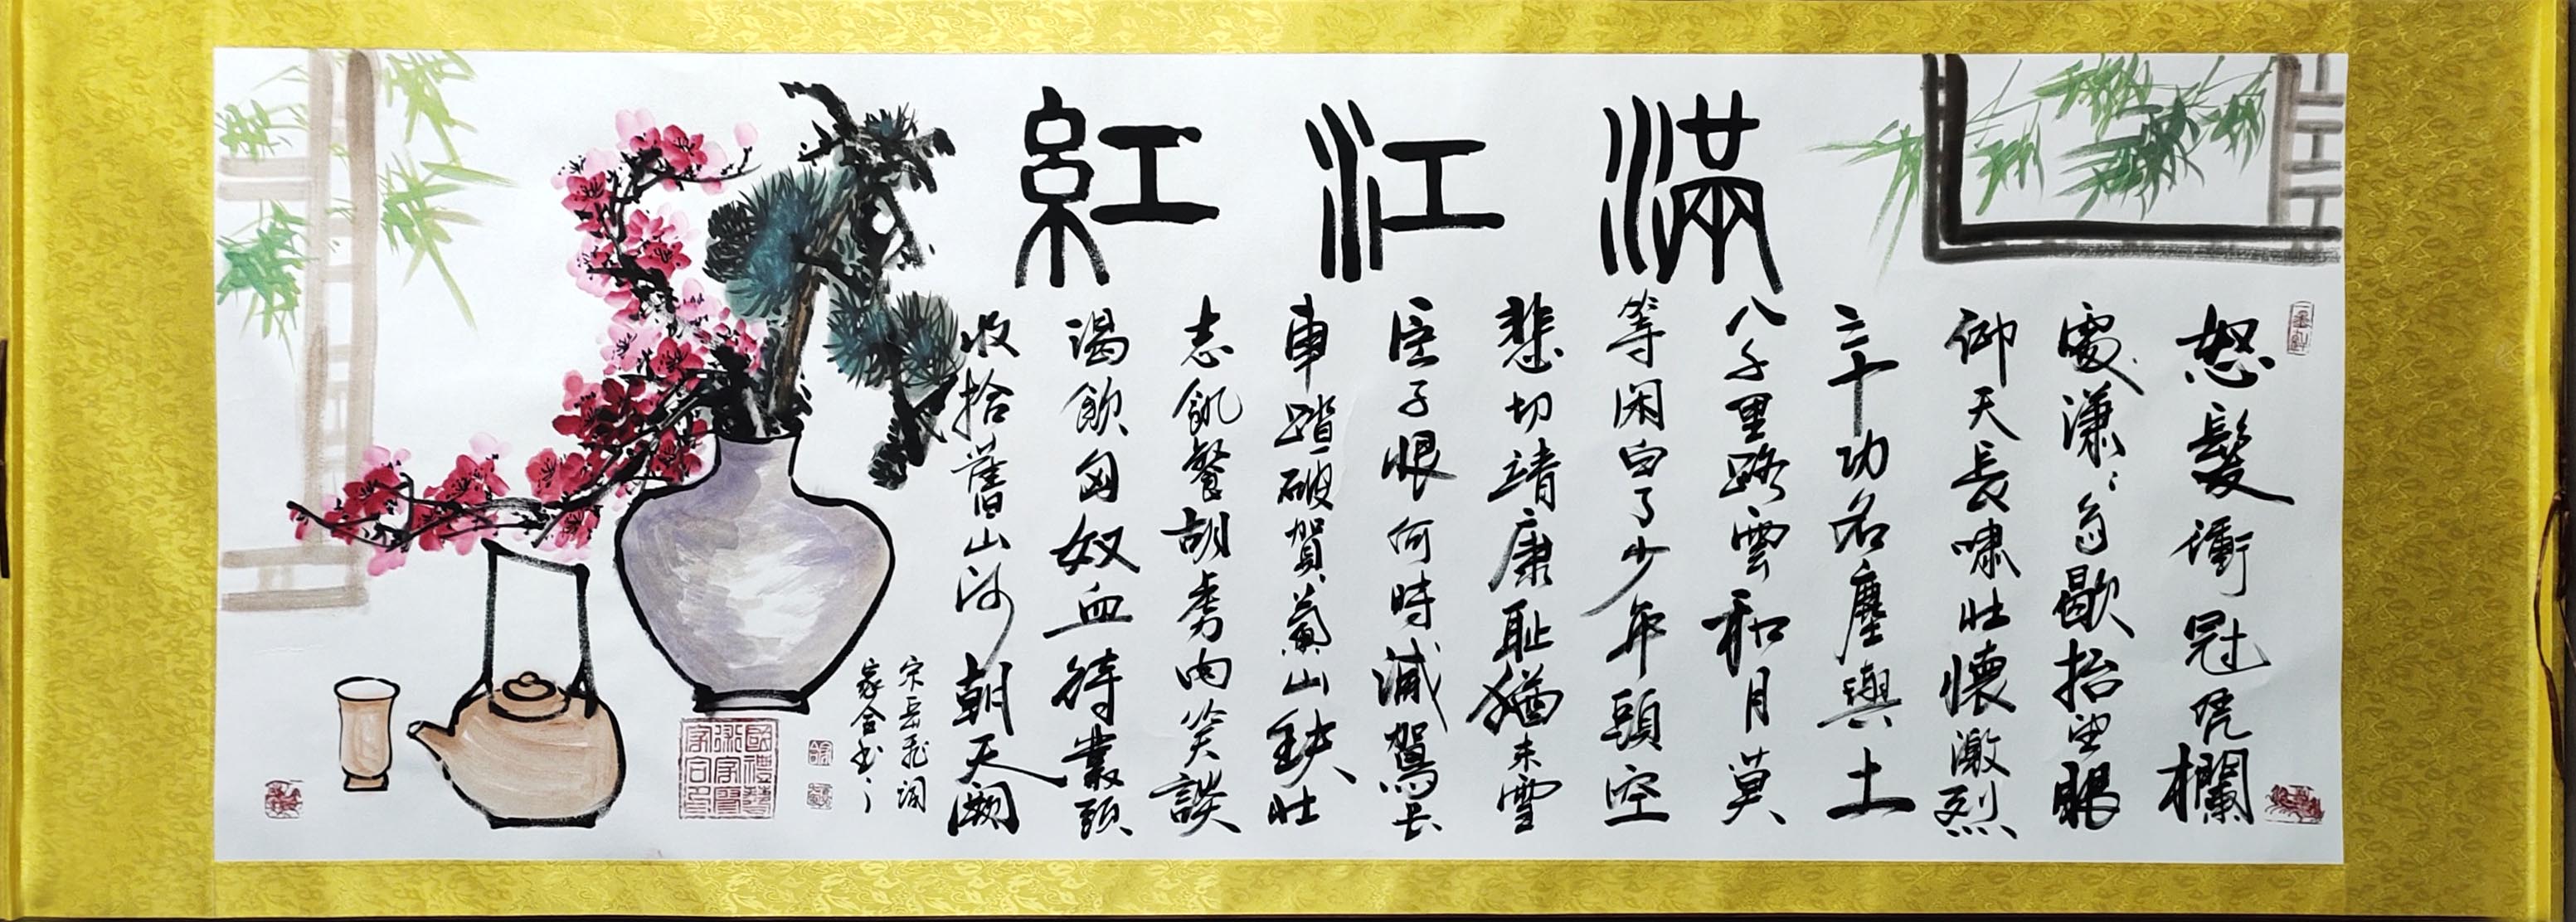 滿江紅
怒髮衝冠凭欄
處瀟〻雨歇抬望眼
仰天長嘯壯懷激烈
三十功名塵與土
八千里路雲和月莫
等閑白了少年頭空
悲切靖康耻猶未雪
臣子恨何時滅駕长
車踏破賀蘭山缺壯
志飢餐胡虜肉笑談
渴飲匈奴血待從頭
收拾舊山河朝天闕
宋岳飛詞
家合书